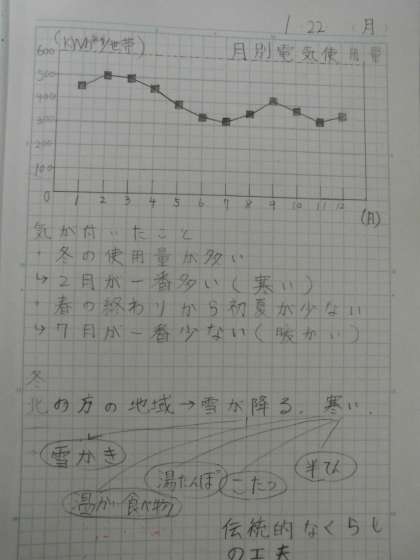 1 22 (月)
(KWh/世帯)
月別電気使用量
600
500
400
300
200
100
0
1 2 3 4 5 6 7 8 9 10 11 12
(月)
気が付いたこと
・冬の使用量が多い
↳2月が一番多い(寒い)
・春の終わりから初夏が少ない
↳7月が一番少ない(暖かい)
冬
北の方の地域→雪が降る.寒い.
雪かき
湯たんぽ
こたつ
半てん
温かい食べ物
伝統的なくらし
の工夫